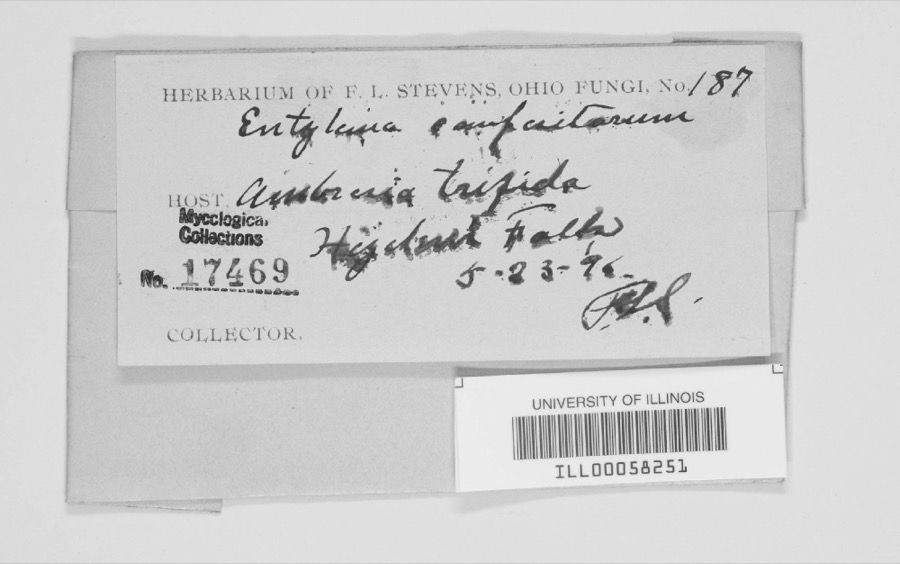 HERBARIUM OF F. L. STEVENS, OHIO FUNGI, No. 187
Entyloma compositarum
HOST. Ambrosia trifida
Mycological
Collections
Falls
No. 17469
5-23-96
F.L.S.
COLLECTOR.
UNIVERSITY OF ILLINOIS
ILL00058251